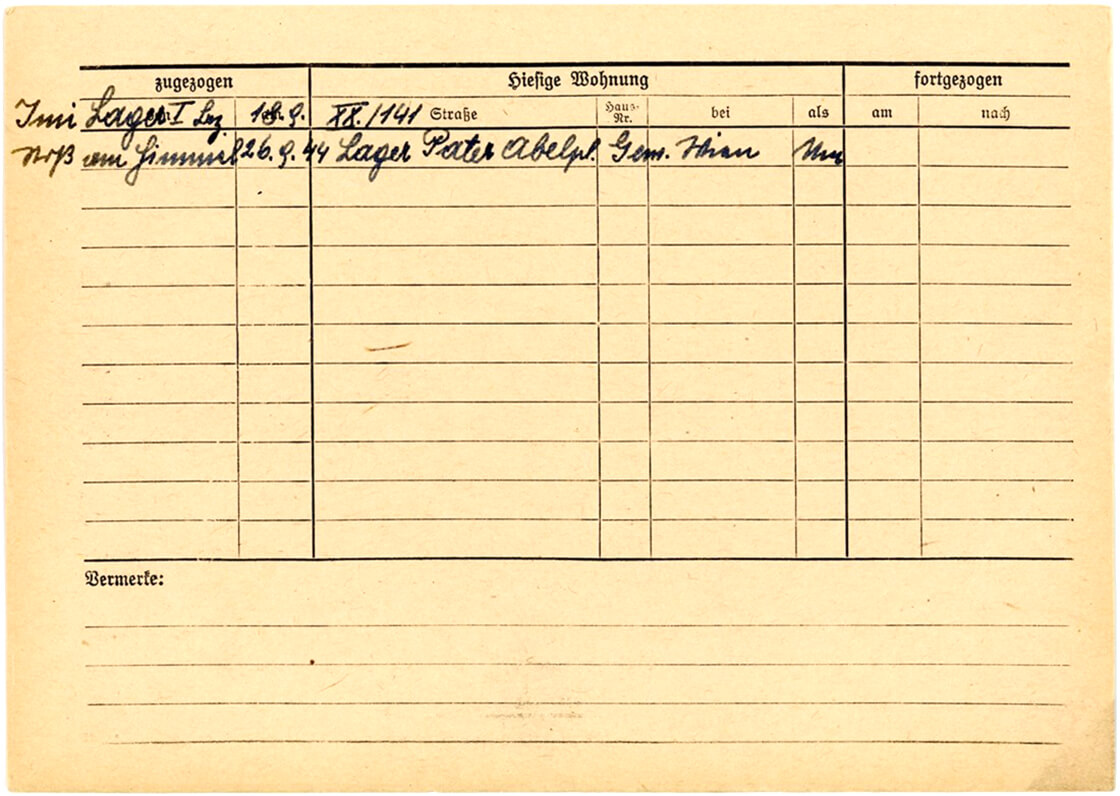 zugezogen Hiesige Wohnung fortgezogen
Lager I 18.9. XX./141 Straße Haus-Nr. bei als am nach
am Himmel 26.9.44 Lager Pater Abelpl. Gem. Wien
Vermerke: